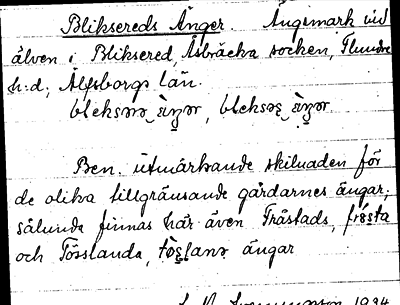 Bliksereds Änger. Ängsmark vid
älven i Bliksered, Åsbräcka socken, Flundre
h:d; Älfsborgs län.
Ben. utmärkande skilnaden för
de olika tillgränsande gårdarnes ängar;
sålunda finnas här även Fråstads,
och Torslanda, ängar
1934